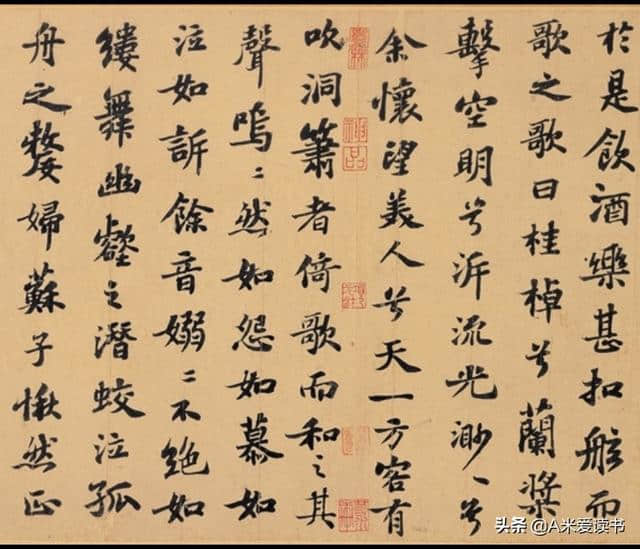 於是飲酒樂甚扣舷而
歌之歌曰桂棹兮蘭槳
擊空明兮泝流光渺〻兮
余懷望美人兮天一方客有
吹洞簫者倚歌而和之其
聲嗚〻然如怨如慕如
泣如訴餘音嫋〻不絕如
縷舞幽壑之潛蛟泣孤
舟之嫠婦蘇子愀然正
神品
头条 @A米爱读书